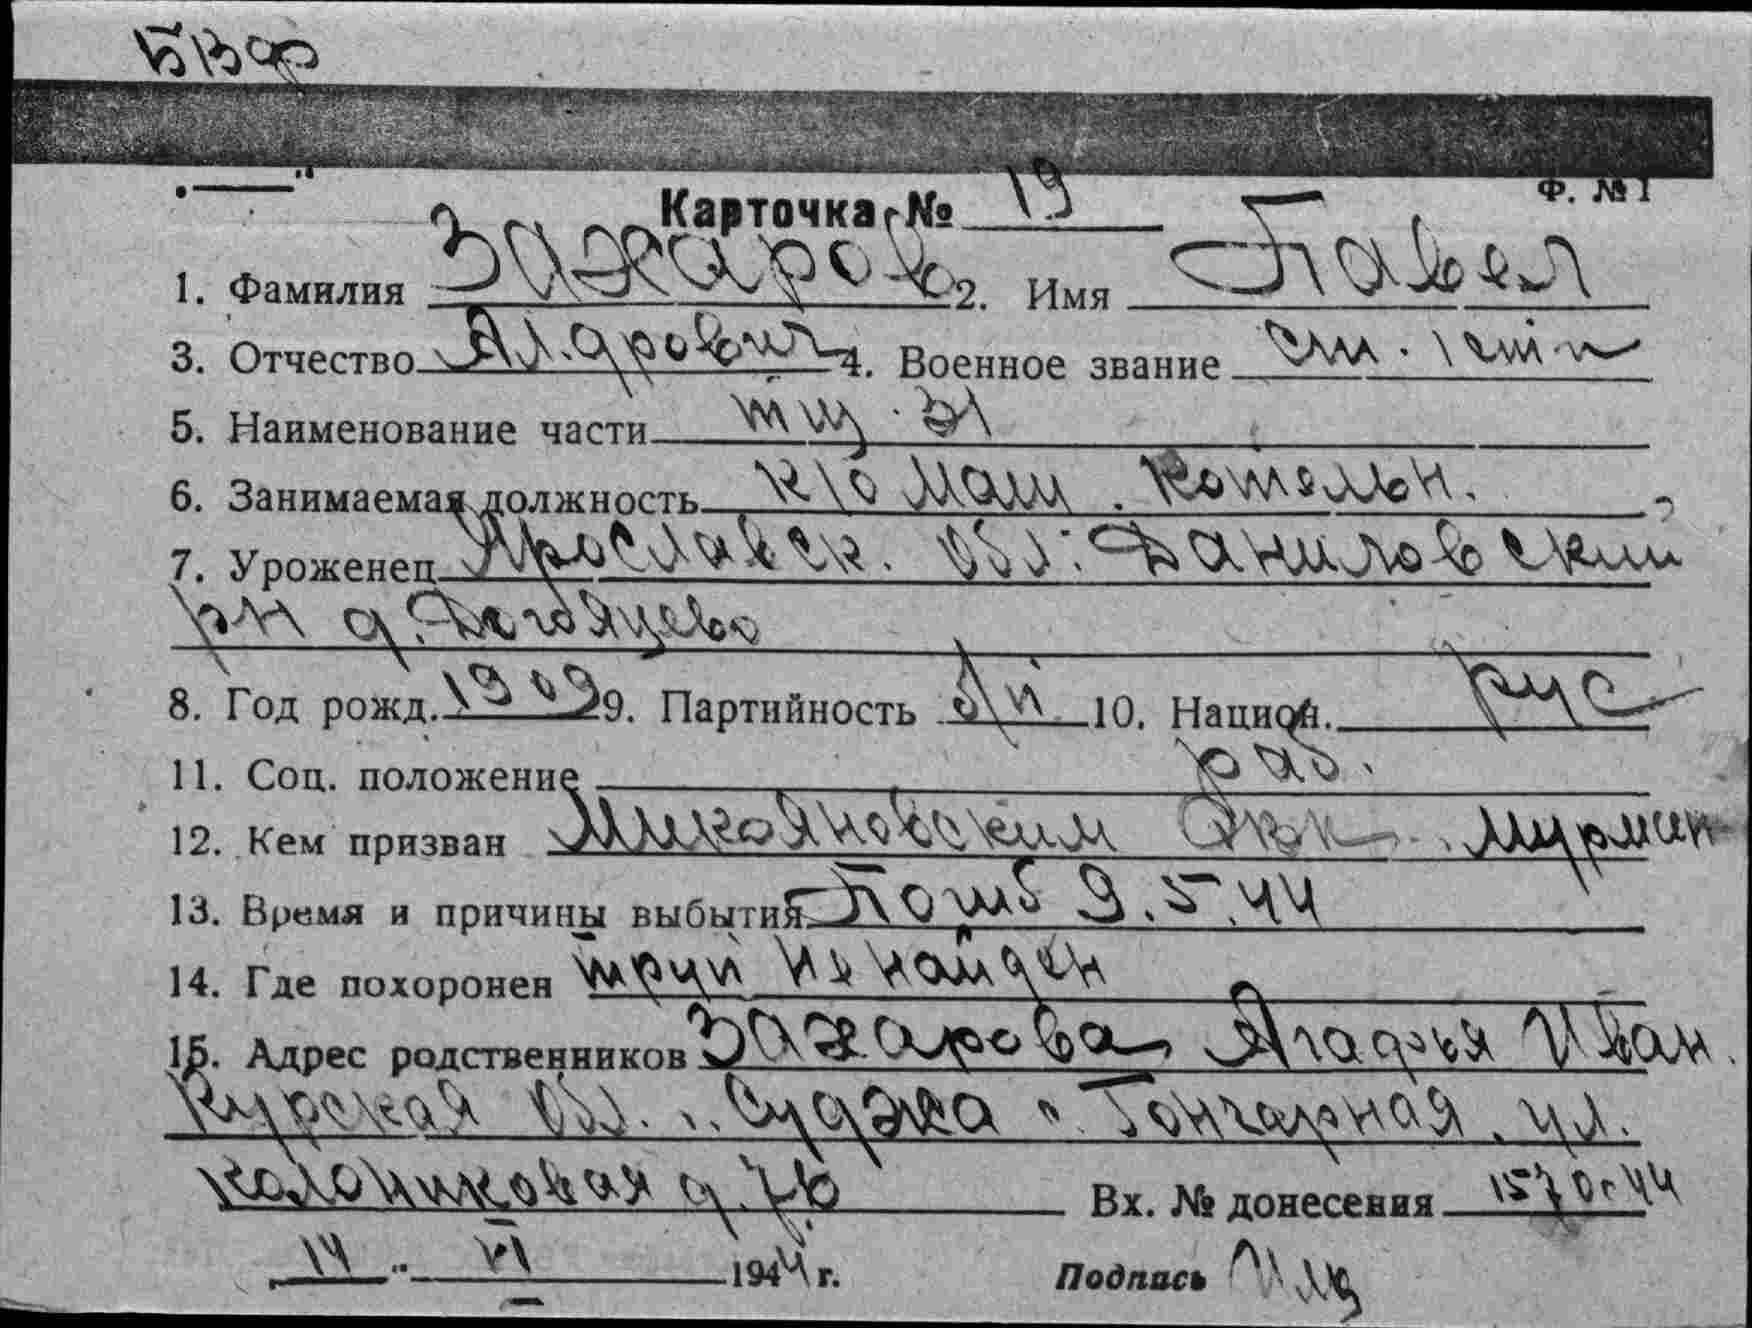 Ф. № 1
Карточка № 19
1. Фамилия Захаров 2. Имя Павел
3. Отчество 4. Военное звание
5. Наименование части тщ.
6. Занимаемая должность к/о маш. котельн.
7. Уроженец Ярославск. обл. Даниловский
рн д.
8. Год рожд. 1909 9. Партийность б/п 10. Национ. рус
11. Соц. положение раб.
12. Кем призван Микояновским Мурман
13. Время и причины выбытия Погиб 9.5.44
14. Где похоронен труп не найден
15. Адрес родственников Захарова Агафья Иван.
Курская обл. Суджа Гончарная ул.
д.
Вх. № донесения
14 " VI 1944 г. Подпись